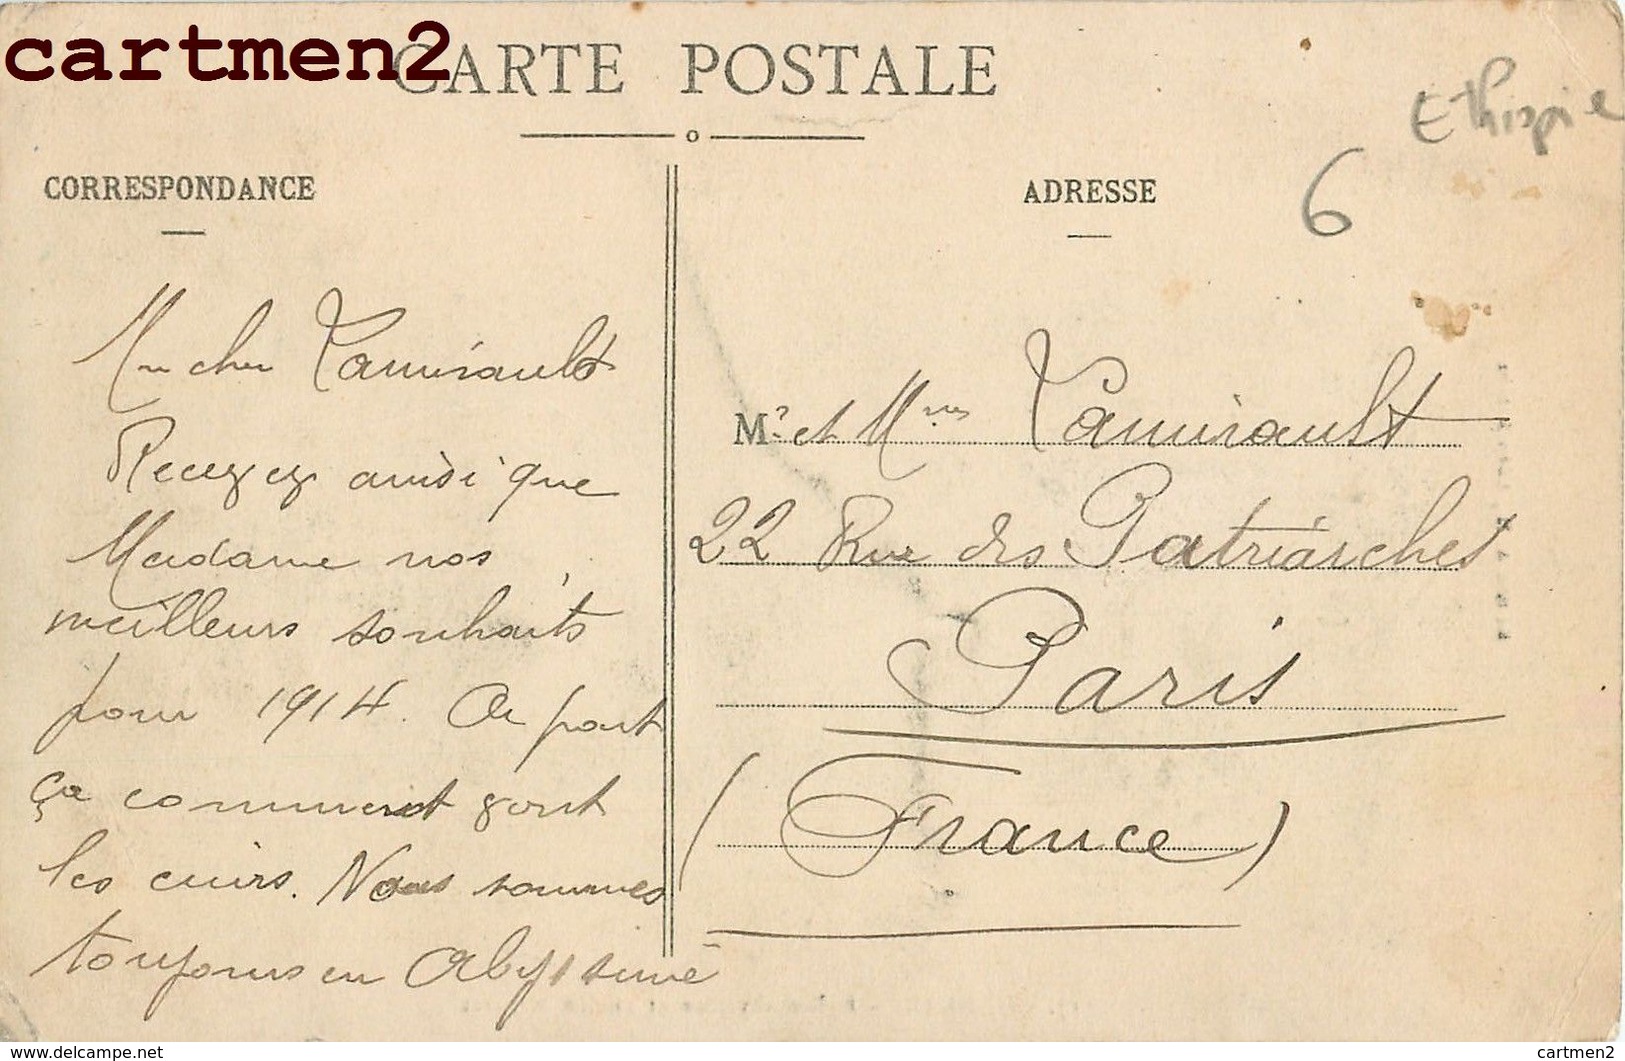 cartmen2
CARTE POSTALE
Ethiopie
6
CORRESPONDANCE
Mon cher Tamirault
Recevez ainsi que
Madame nos
meilleurs souhaits
pour 1914. A part
ça comment vont
les cuirs. Nous sommes
toujours en Abyssinie
ADRESSE
Mr et Mme Tamirault
22 Rue des Patriarches
Paris
(France)
delcampe.net
cartmen2